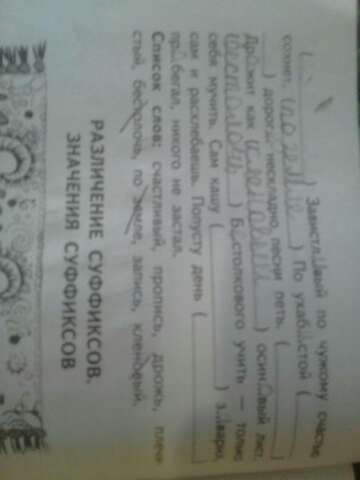 ( ) Завистл и вый по чужому счастью
сохнет. (по земле) По ухаб и стой (
) дорог е нескладно, песни петь. (
Др о жит как (кленовый) осин о вый лист.
(бестолочь) Б е столкового учить — только
себя мучить. Сам кашу ( ) з а варил,
сам и расхлебаешь. Попусту день (
пр о бегал, никого не застал.
Список слов: счастливый, пропись, дрожь, плечи
стый, бестолочь, по земле, запись, кленовый.
РАЗЛИЧЕНИЕ СУФФИКСОВ.
ЗНАЧЕНИЯ СУФФИКСОВ